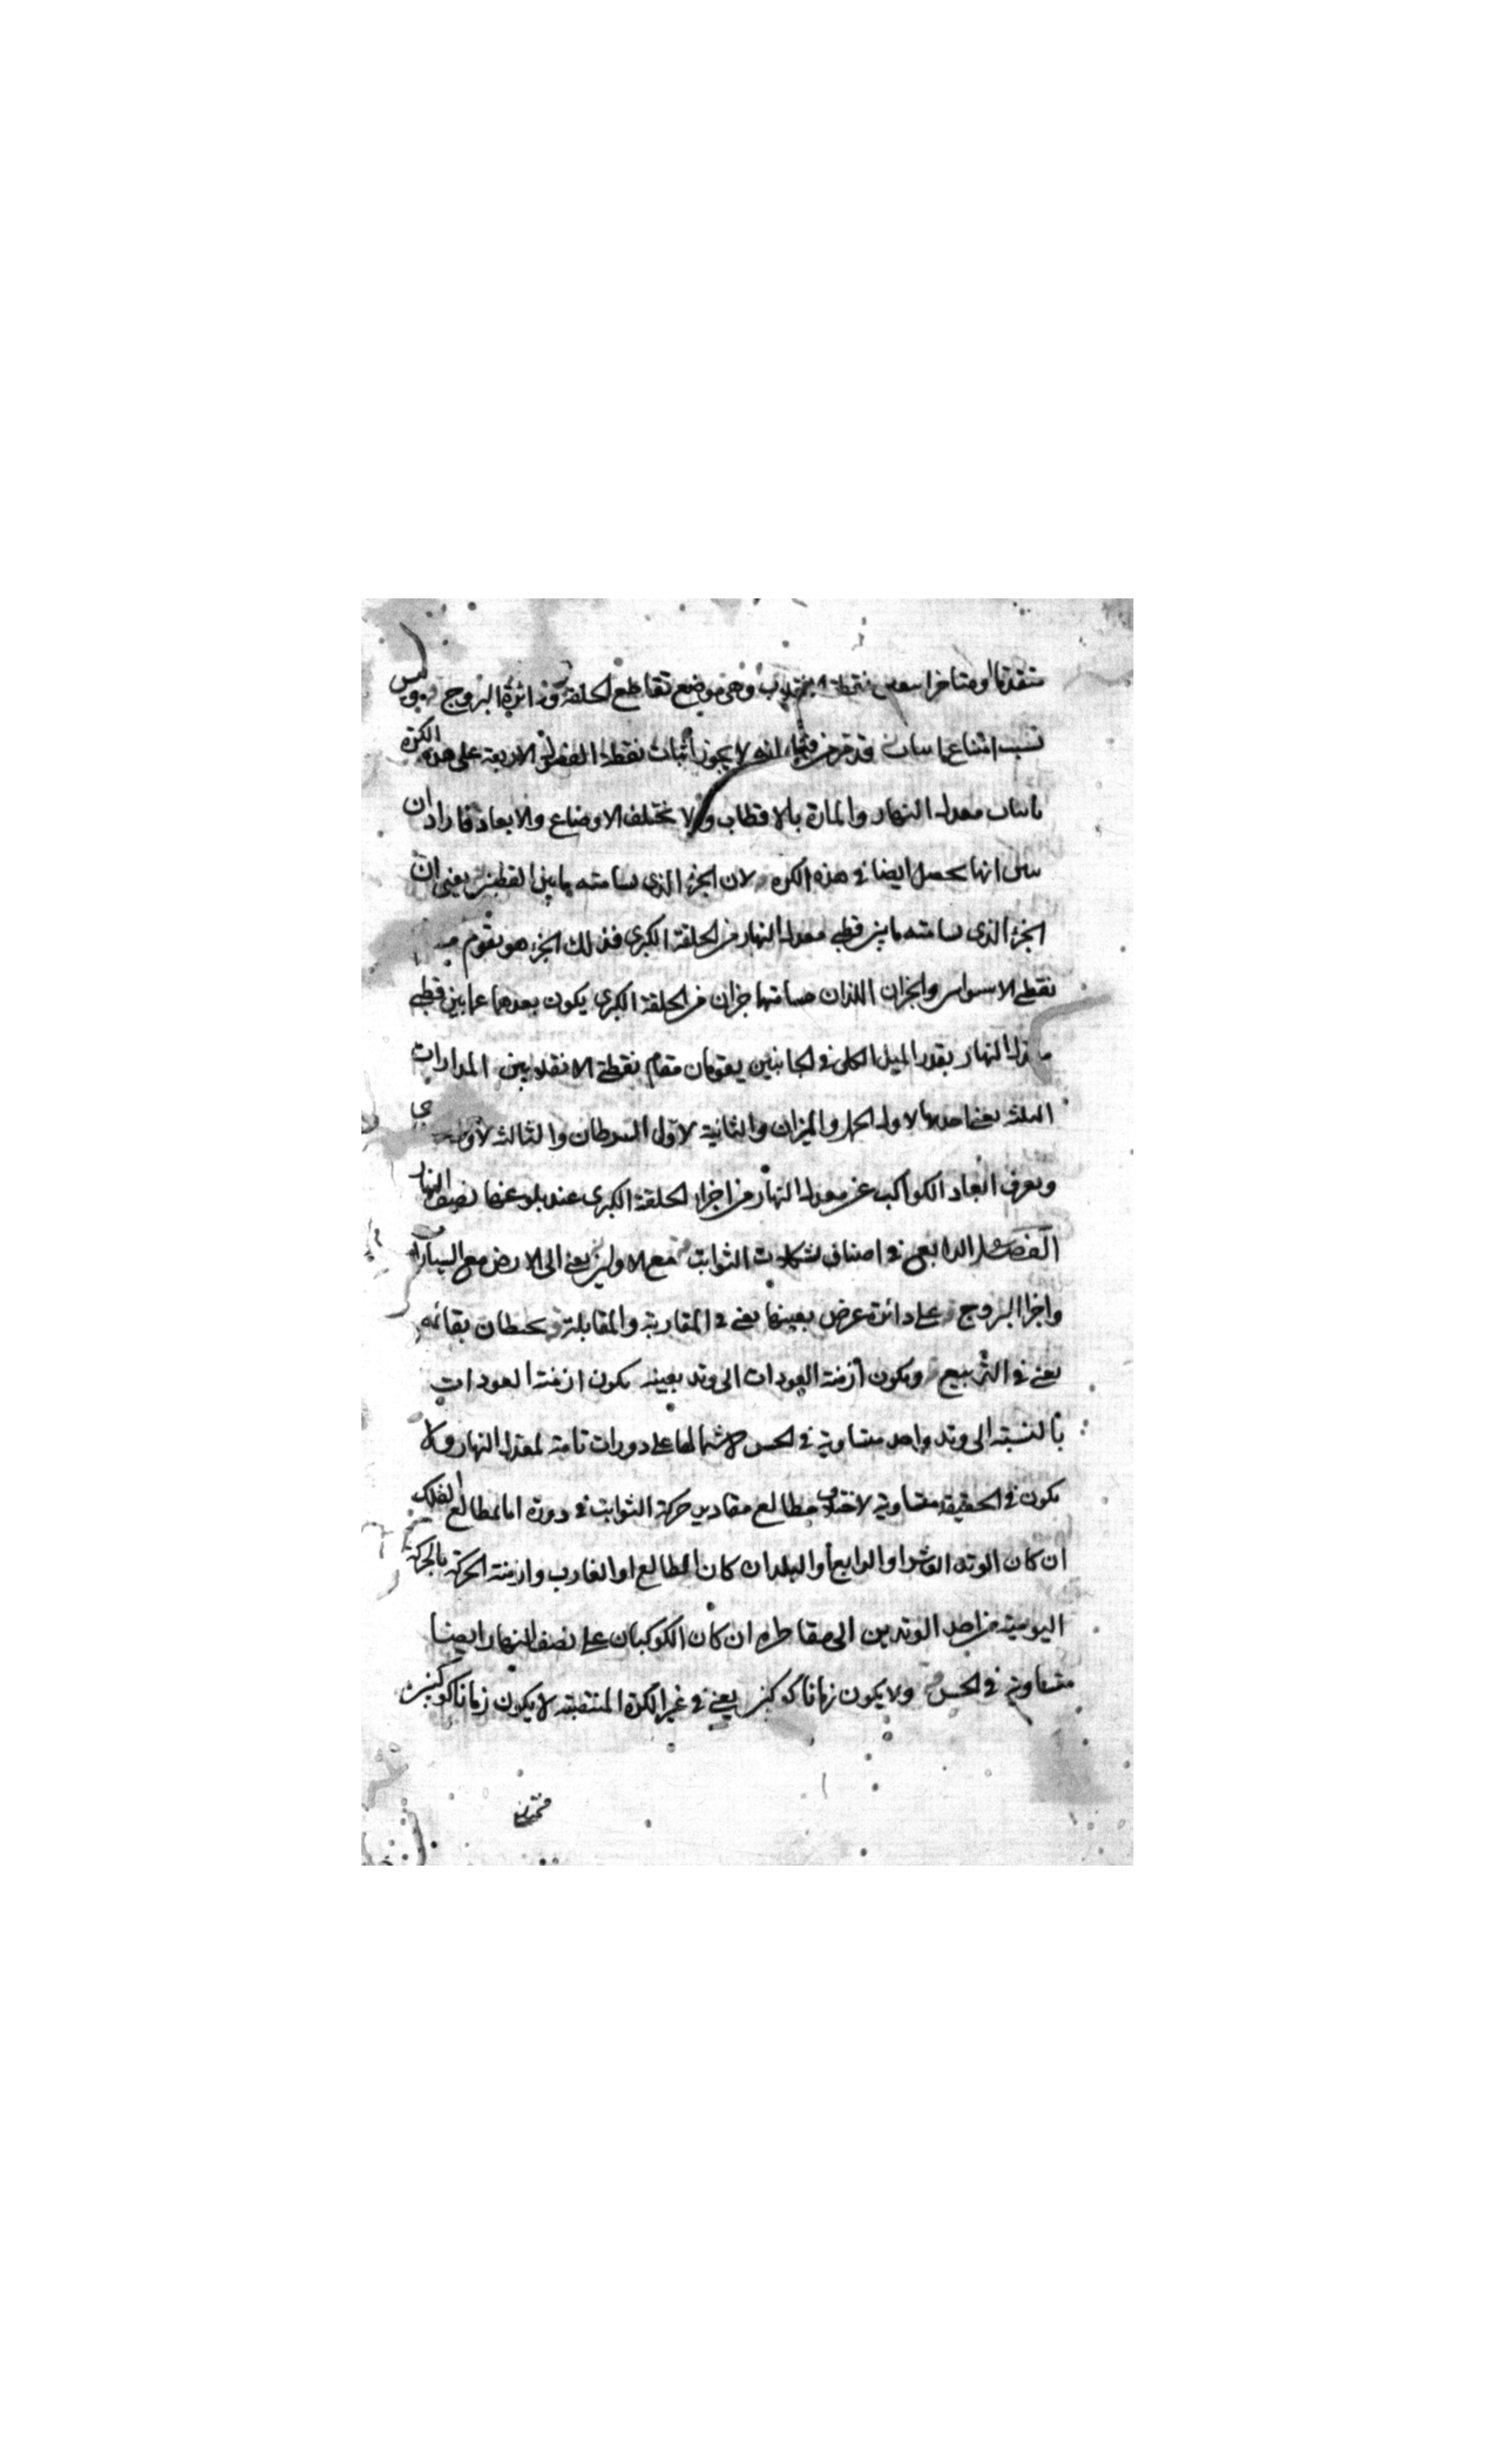 متقدما او متاخرا وهى موضع تقاطع الحلقة ودائرة البروج وليس
نسبت امتناع قد عرض فيها انه لا يجوز اثبات نقطة الفصول الاربعة على هذه الكرة
باثبات معدل النهار والمارة بالاقطاب ولا تختلف الاوضاع والابعاد فاراد ان
يبين انها يحصل ايضا فى هذه الكرة لان الجزء الذى يسامته ما بين القطبين يعنى ان
الجزء الذى يسامته ما بين قطبى معدل النهار من الحلقة الكبرى فذلك الجزء هو يقوم
نقطتى الاستواء والجزان اللذان مسامتهما جزان من الحلقة الكبرى يكون بعدهما عما بين قطبى
معدل النهار بقدر الميل الكلى فى الجانبين يقومان مقام نقطتى الانقلابين المدارات
الثلثة يعنى احديها لاول الحمل والميزان والثانية لاول السرطان والثالثة لاول
ويعرف ابعاد الكواكب عن معدل النهار من اجزاء الحلقة الكبرى عند بلوغها نصف النهار
الفصل الرابع فى اصناف تشكلات الثوابت مع الاولين يعنى الى الارض مع السيارات
واجزا البروج على دائرة عرض بعينها يعنى فى المقارنة والمقابلة ويحيطان بقائمه
يعنى فى التربيع ويكون ازمنة العودات الى وتد بعينه يكون ازمنة العودات
بالنسبة الى وتد واحد متساوية فى الحس لاشتمالها على دورات تامة لمعدل النهار ولا
يكون فى الحقيقة متساوية لاختلاف مطالع مقادير حركة الثوابت فى دورة اما بمطالع الفلك
ان كان الوتد العاشر او الرابع او البلد ان كان الطالع او الغارب وازمنة الحركة بالحركة
اليومية من احد الوتدين الى مقاطره ان كان الكوكبان على نصف النهار ايضا
متساوية فى الحس ولا يكون زمانا كوكبين يعنى فى غير الكرة المنتصبة لا يكون زمانا كوكبين